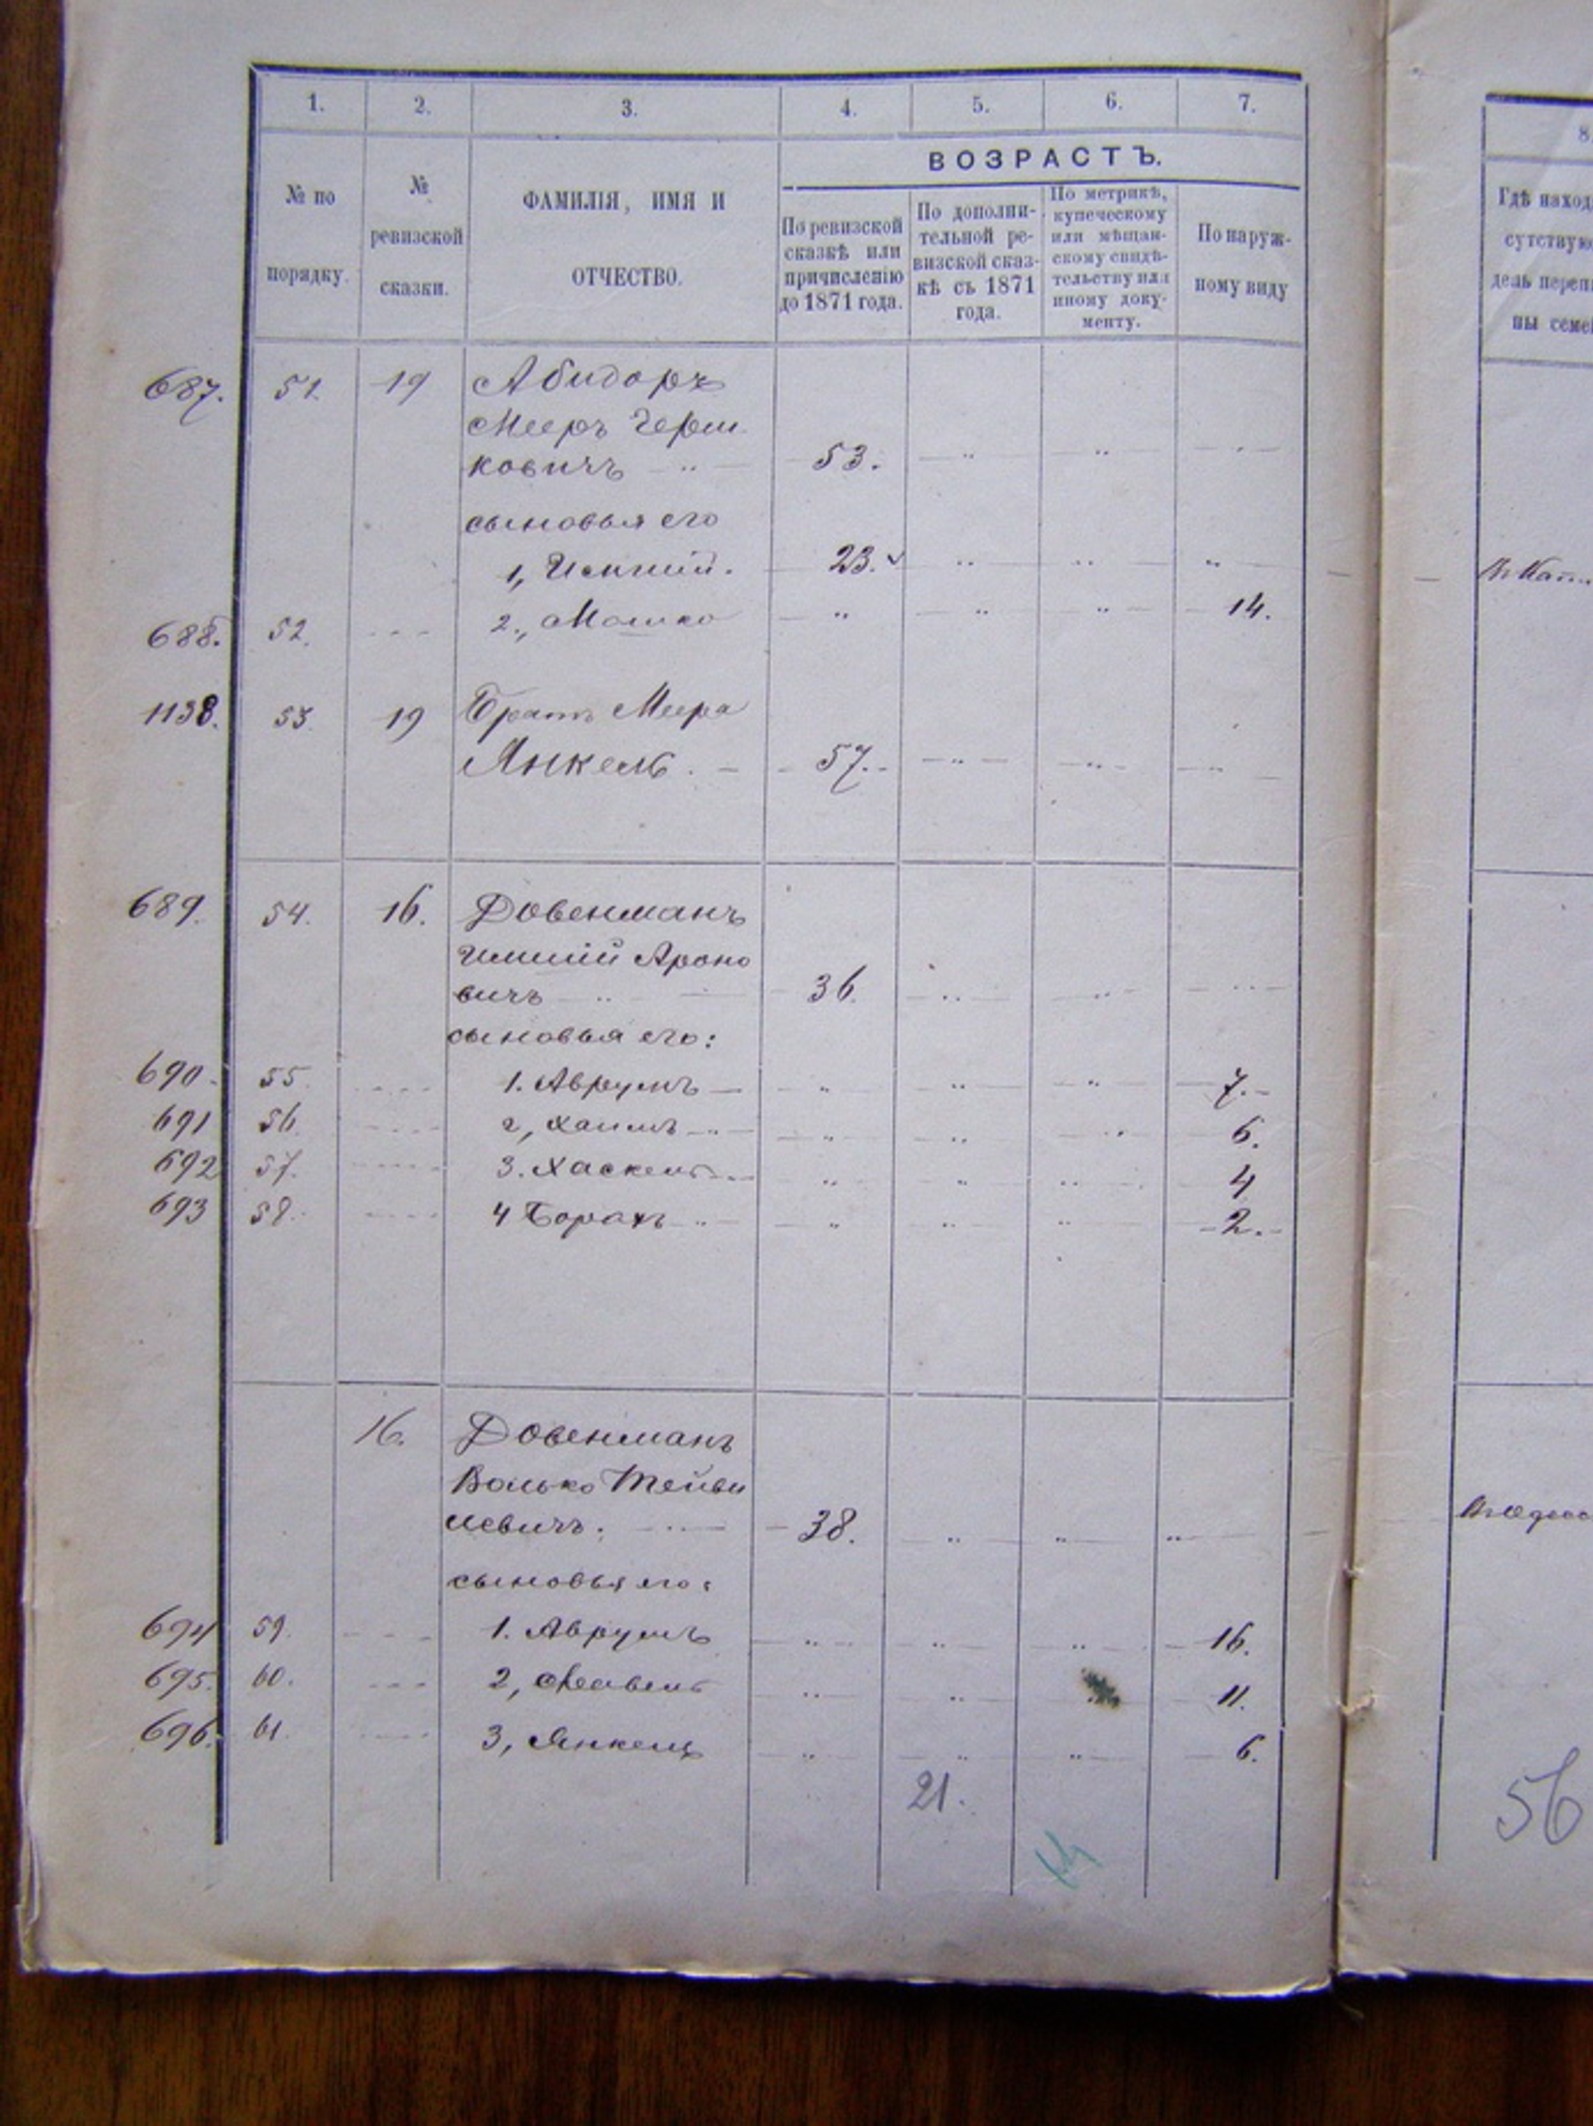 1. 2. 3. 4. 5. 6. 7.
ВОЗРАСТЪ.
№ по порядку.
№ ревизской сказки.
ФАМИЛІЯ, ИМЯ И ОТЧЕСТВО.
По ревизской сказкѣ или причисленію до 1871 года.
По дополнительной ревизской сказкѣ съ 1871 года.
По метрикѣ, купеческому или мѣщанскому свидѣтельству или иному документу.
По наружному виду
687. 51. 19 Абидоръ
Мееръ Герш
ковичъ 53.
сыновья его
1, 23.
688. 52. 2., Мошко 14.
1138. 53. 19 Братъ Меера
Янкель. 57.
689. 54. 16. Довенманъ
Ароно
вичъ 36.
сыновья его:
690. 55. 1. Аврумъ 7.
691 56. 2, Хаимъ 6.
692 57. 3. Хаскель 4
693 58. 4 Борахъ 2.
16. Довенманъ
Волько Тейви
левичъ. 38.
сыновья его:
694 59. 1. Аврумъ 16.
695. 60. 2, 11.
696. 61. 3, Янкель 6.
21.
8
Гдѣ наход
сутствую
дѣль переп
ны семе
56